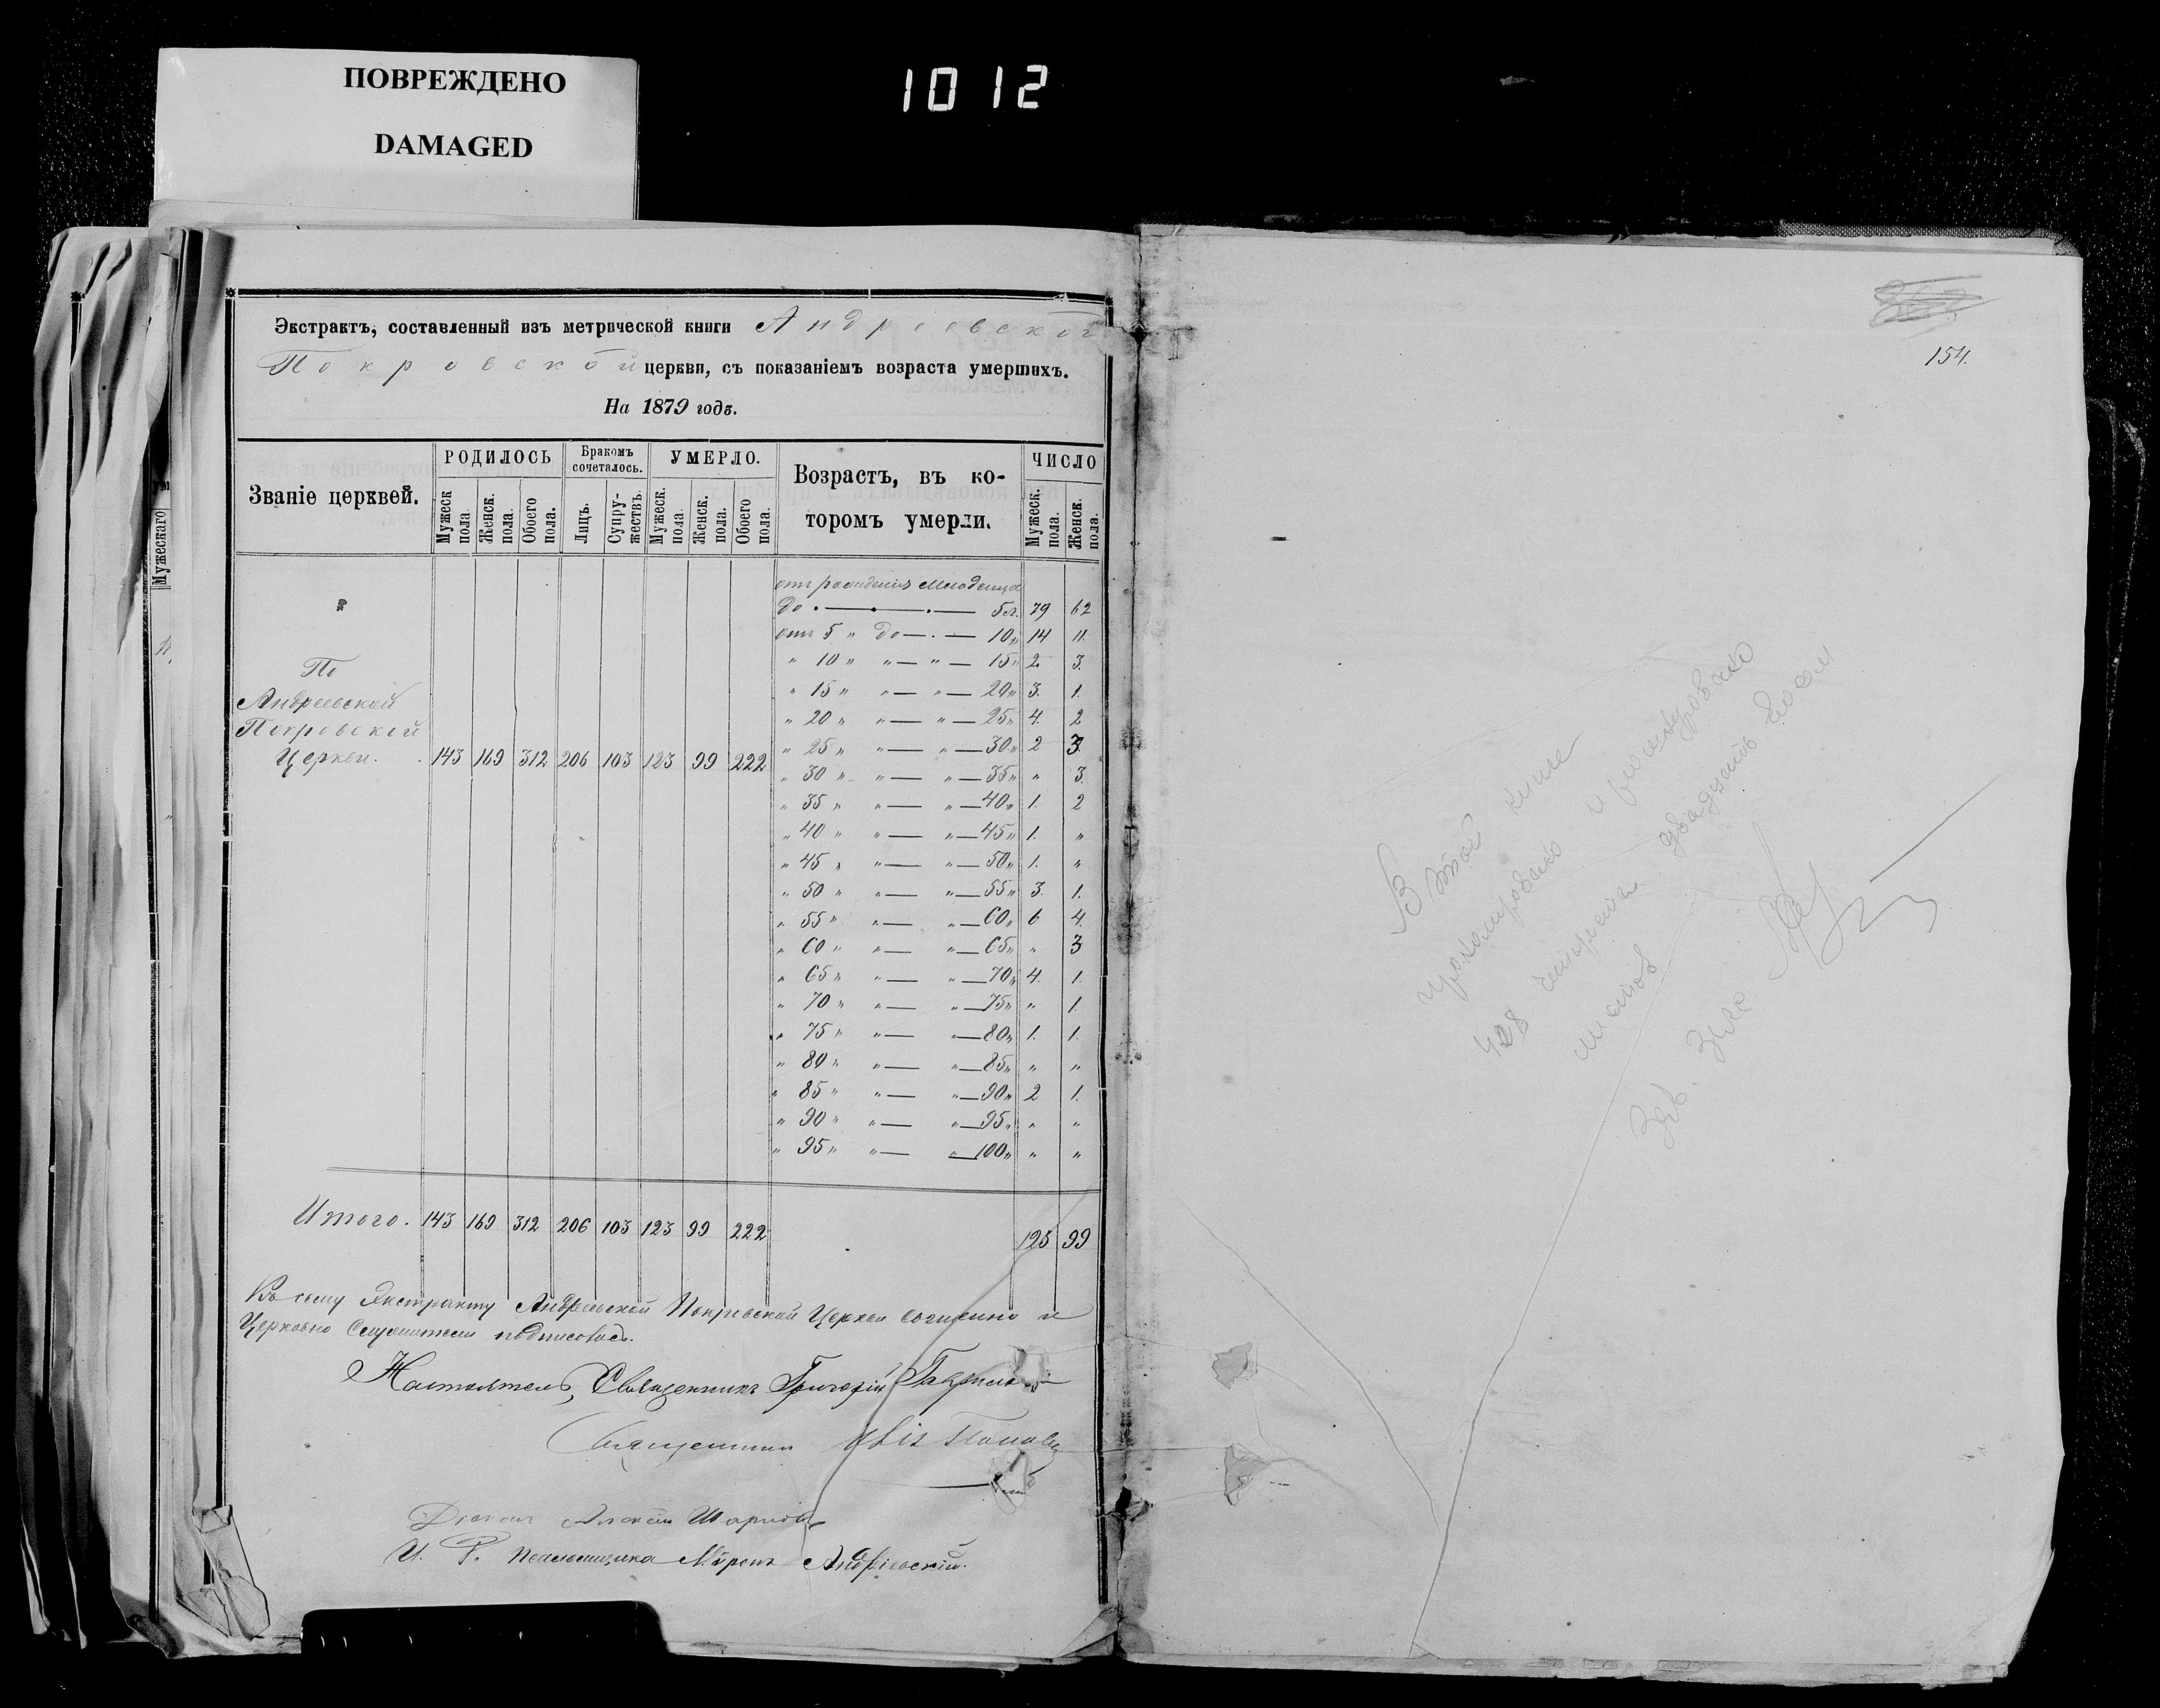 ПОВРЕЖДЕНО
DAMAGED
1012
Экстрактъ, составленный изъ метрической книги Андреевской
Покровской церкви, съ показаніемъ возраста умершихъ.
На 1879 годъ.
Званіе церквей. РОДИЛОСЬ Бракомъ сочеталось. УМЕРЛО. Возрастъ, въ которомъ умерли. ЧИСЛО
Мужеск пола. Женск. пола. Обоего пола. Лицъ. Супружествъ. Мужеск. пола. Женск. пола. Обоего пола. Мужеск. пола. Женск. пола.
отъ рожденія младенца
до 5 л. 79 62
отъ 5 " до 10 " 14 11.
" 10 " " " 15 " 2 3.
" 15 " " " 20 " 3. 1.
" 20 " " " 25 " 4. 2
" 25 " " " 30 " 2 3.
" 30 " " " 35 " " 3.
" 35 " " " 40 " 1. 2
" 40 " " " 45 " 1. "
" 45 " " " 50 " 1. "
" 50 " " " 55 " 3. 1.
" 55 " " " 60 " 6 4.
" 60 " " " 65 " " 3
" 65 " " " 70 " 4. 1.
" 70 " " " 75 " " 1.
" 75 " " " 80 " 1. 1.
" 80 " " " 85 " " "
" 85 " " " 90 " 2 1.
" 90 " " " 95 " " "
" 95 " " " 100 " " "
По
Андреевской
Покровской
Церкви. 143 169 312 206 103 123 99 222
Итого. 143 169 312 206 103 123 99 222 125 99
Къ сему Экстракту Андреевской Покровской Церкви
Церковно подписовас.
Настоятель, Священникъ Григорій
Священникъ
Діаконъ Алексѣй
И. Р. Псаломщика Андріевскій.
Мужескаго
154.
В этой книге
пронумеровано и прошнуровано
428 четыреста двадцать восем
листов
Зав.